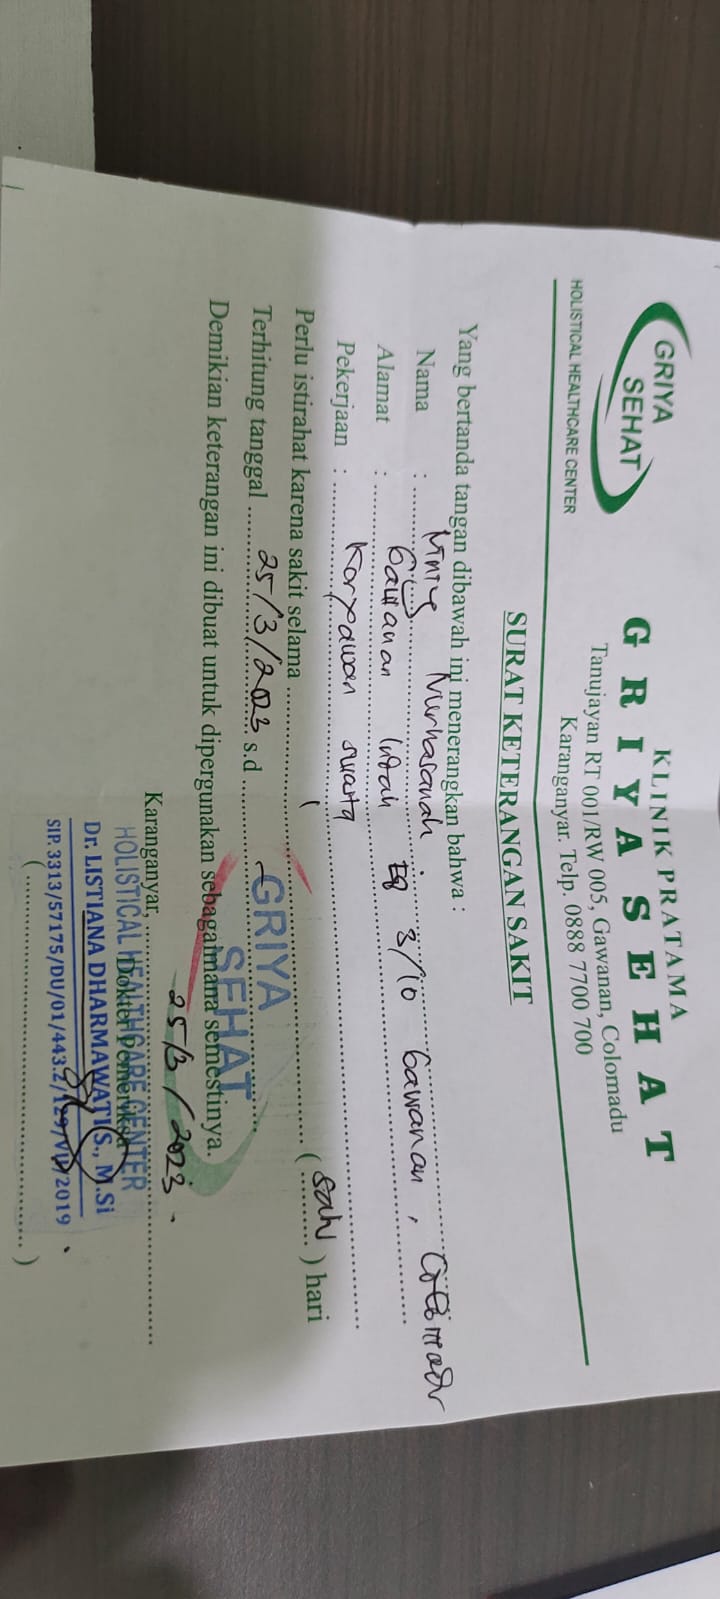 GRIYA
SEHAT
HOLISTICAL HEALTHCARE CENTER
KLINIK PRATAMA
GRIYA SEHAT
Tanujayan RT 001/RW 005, Gawanan, Colomadu
Karanganyar. Telp. 0888 7700 700
SURAT KETERANGAN SAKIT
Yang bertanda tangan dibawah ini menerangkan bahwa :
Nama : Nurhasanah
Alamat : Gawanan Indah 3/10 Gawanan, Colomadu
Pekerjaan : Karyawan swasta
Perlu istirahat karena sakit selama 1 (satu) hari
Terhitung tanggal 25/3/2023 s.d -
GRIYA
SEHAT
Demikian keterangan ini dibuat untuk dipergunakan sebagaimana semestinya.
Karanganyar, 25/3/2023.
HOLISTICAL HEALTHCARE CENTER
Dokter Pemeriksa
Dr. LISTIANA DHARMAWATI S., M.Si
SIP. 3313/57175/DU/01/443.2/129/VII/2019
( )